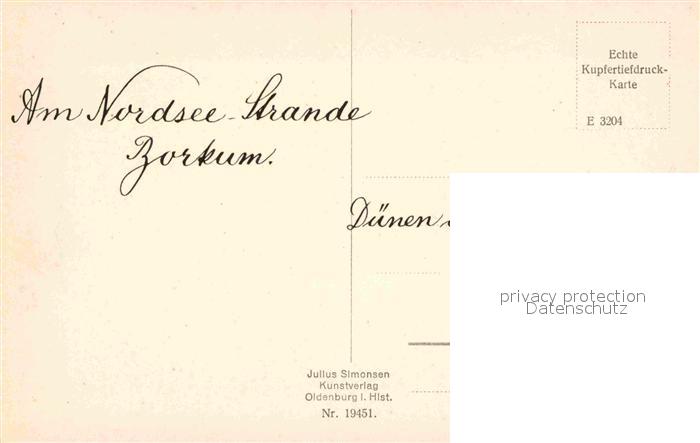 Am Nordsee-Strande
Borkum.
Dünen
Echte
Kupfertiefdruck-
Karte
E 3204
privacy protection
Datenschutz
Julius Simonsen
Kunstverlag
Oldenburg i. Hlst.
Nr. 19451.